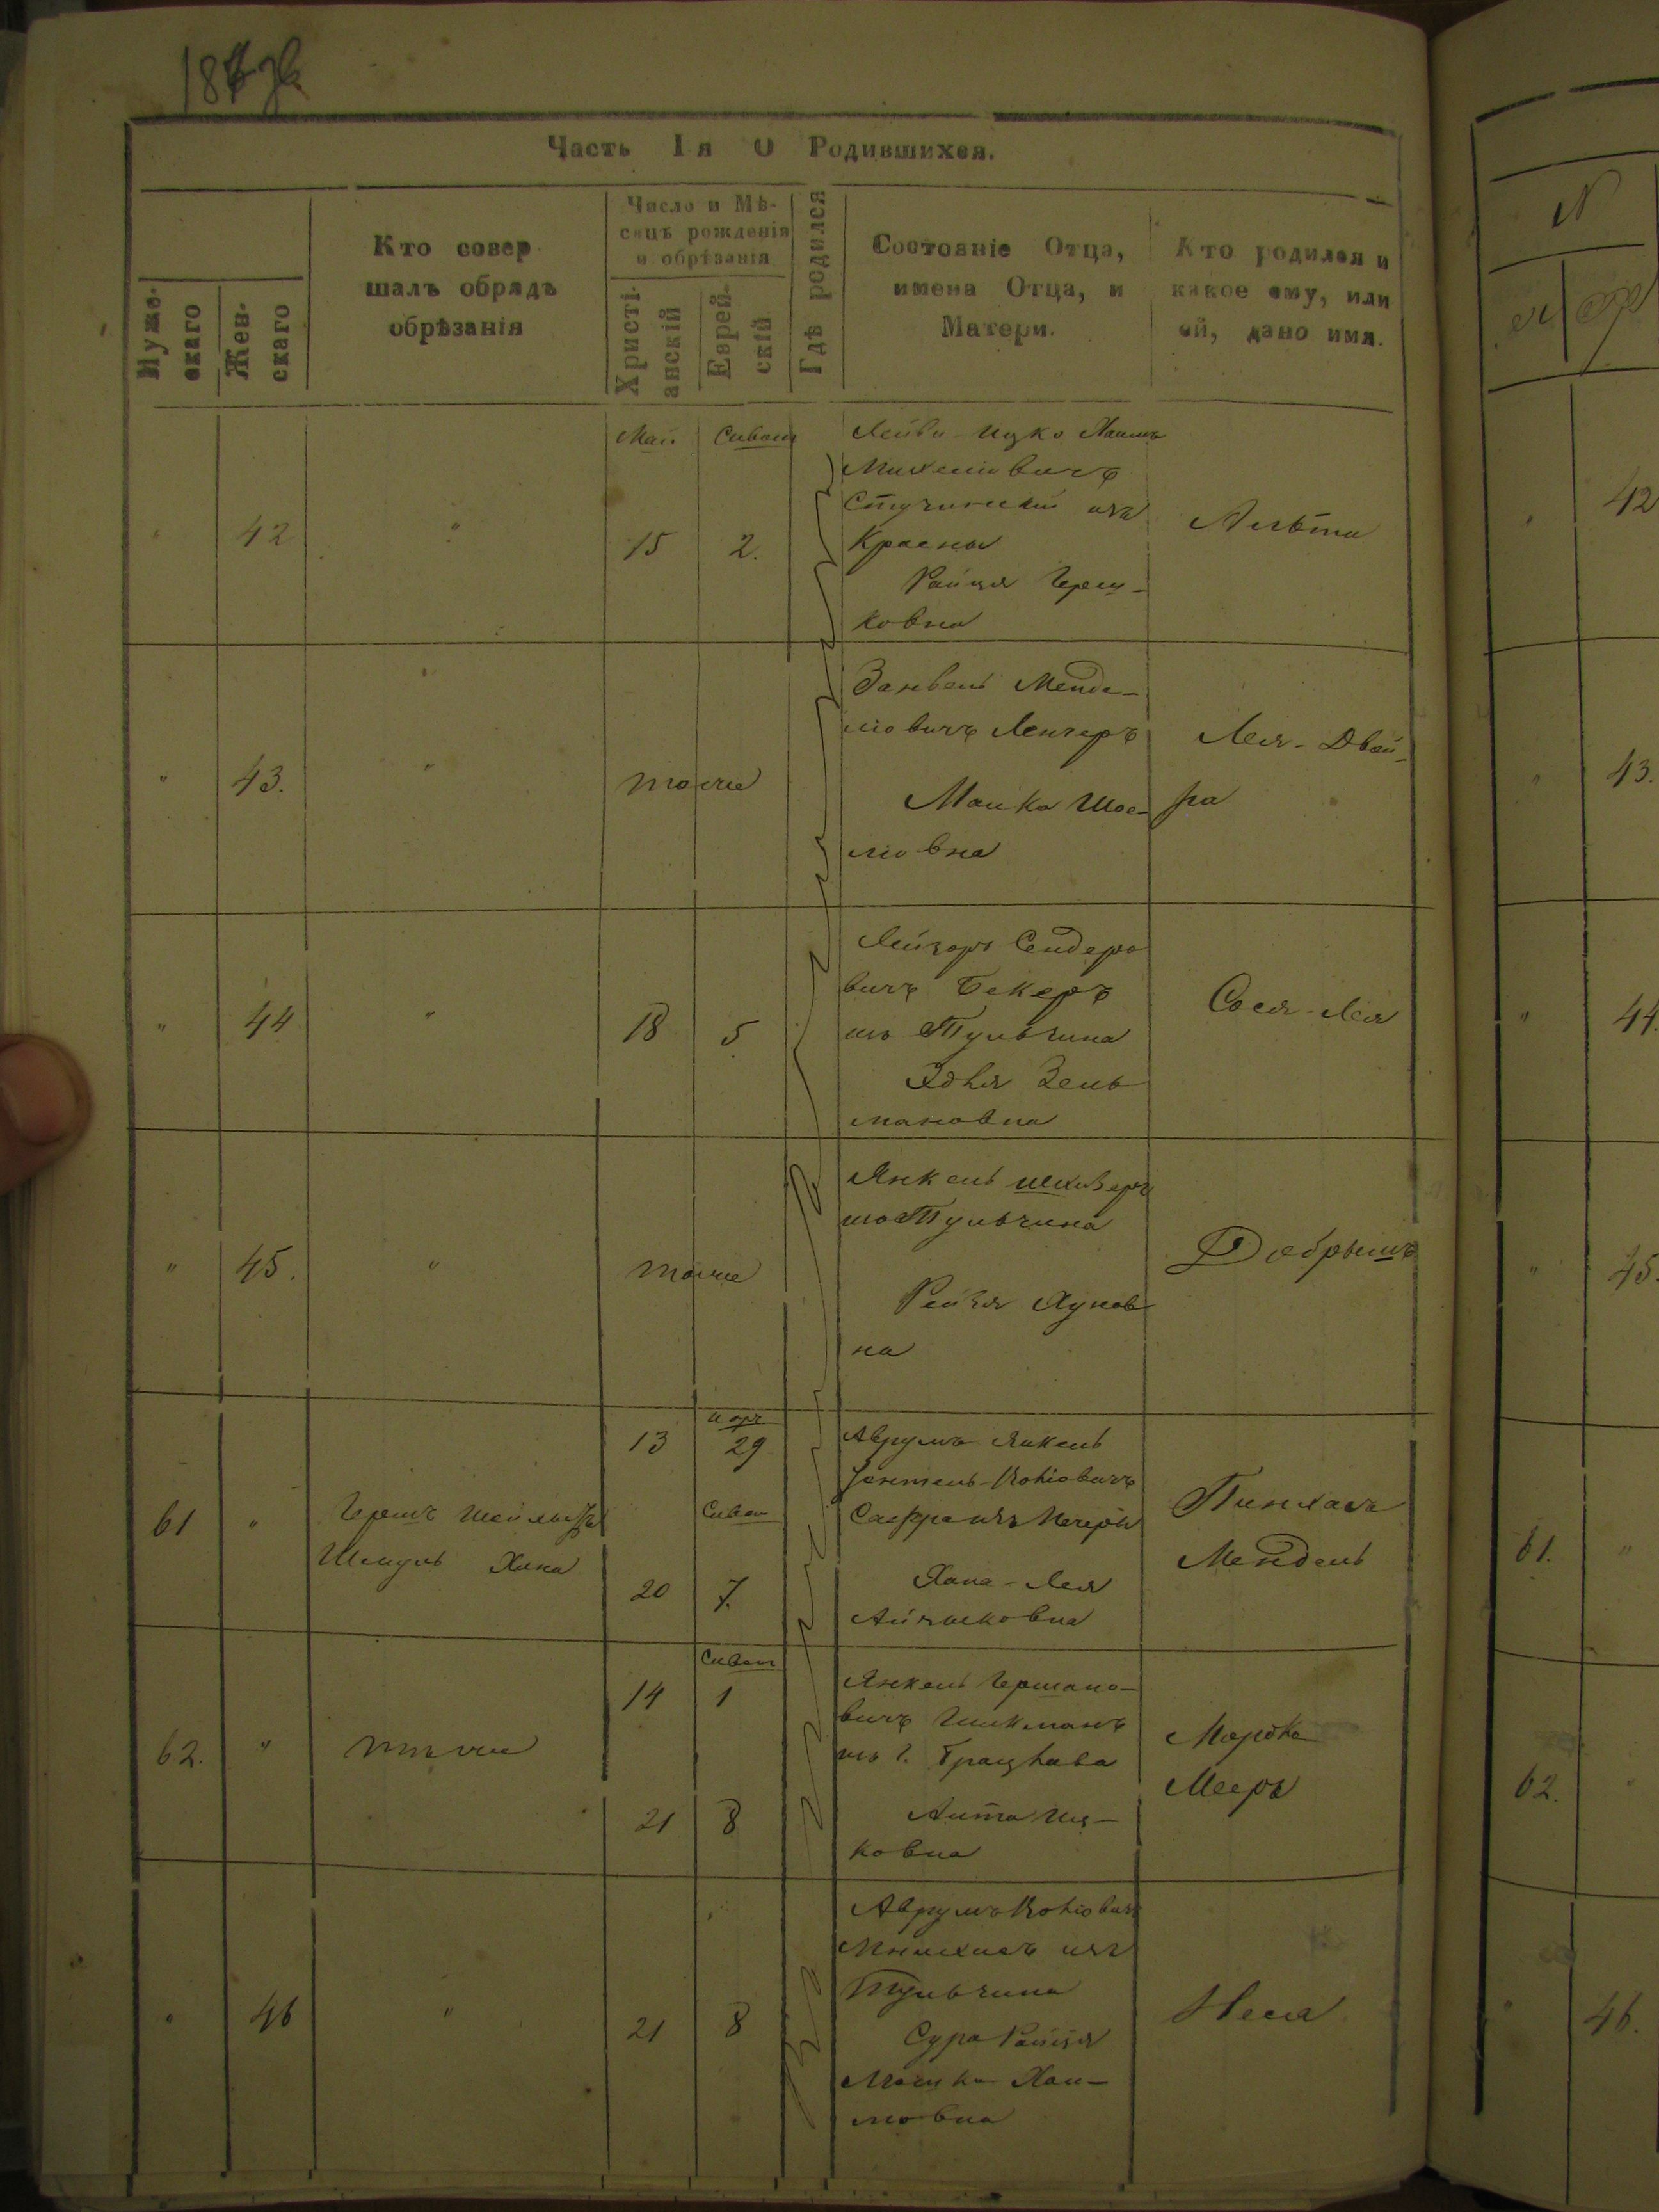 Часть I я О Родившихся.
Мужескаго
Женскаго
Кто совер
шалъ обрядъ
обрѣзанія
Число и Мѣ-
сяцъ рожденія
и обрѣзанія
Христі-
анскій
Еврей-
скій
Гдѣ родился
Состояніе Отца,
имена Отца, и
Матери.
Кто родился и
какое ему, или
ей, дано имя.
Май Сиванъ
" 42 " 15 2.
Лейви Ицко Хаимъ
Михелiовичъ
изъ
Красны
Райця Герш-
ковна
" 43. " тоже
Занвель Менде-
лiовичъ Ленчеръ
Малка Шое-
лiовна
Лея-Двой-
ра
" 44 " 18 5
Лейзоръ Сендеро
вичъ Бекеръ
изъ Тульчина
Эдля Зель
мановна
Сося-Лея
" 45. " тоже
Янкель
изъ Тульчина
Рейзя Хунов
на
Добрышъ
61 " Гершъ
Шмуль Хина
13 29
Сиван
20 7.
Аврумъ Янкель
Печеры
Хана-Лея
Айзыковна
Пинхасъ
Мендель
62. " тоже
Сиванъ
14 1
21 8
Янкель Гершано-
вичъ Шикманъ
изъ г. Брацлава
Аита Иц-
ковна
Мордко
Мееръ
" 46 " 21 8
Аврумъ
изъ
Тульчина
Сура Райця
Малка Хаи-
мовна
Неся
N
42
" 43.
" 44.
" 45.
61. "
62.
46.